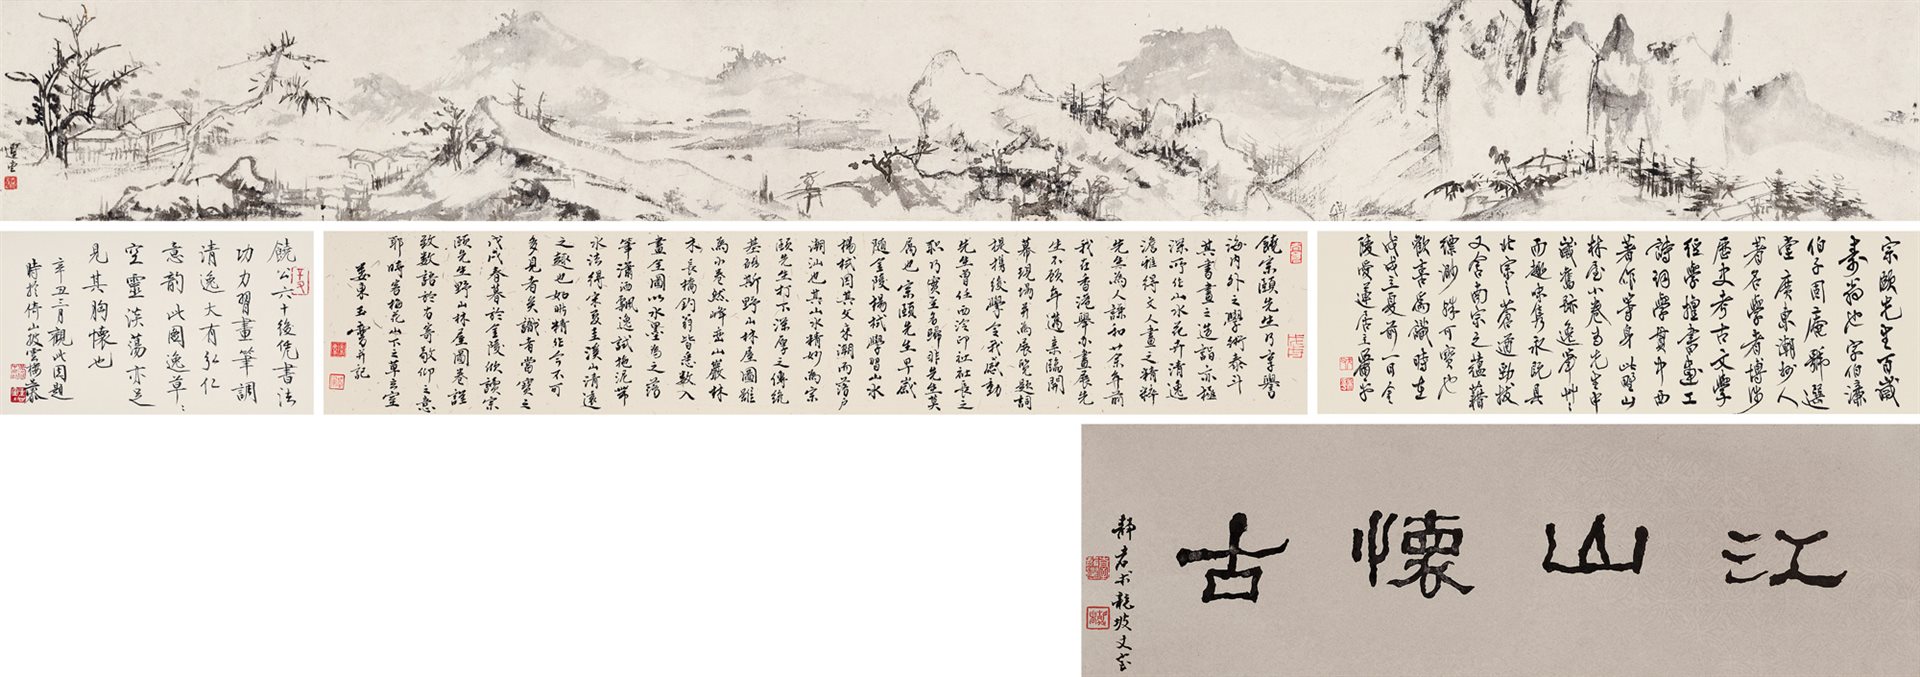 選堂
宗頤先生百歲
壽翁也字伯濂
伯子固庵號選
堂廣東潮州人
著名學者博涉
歷史考古文學
經學擅書畫工
詩詞學貫中西
著作等身此野山
林屋小卷為先生中
歲舊跡逸筆艸〻
而趣味雋永既具
北宗之蒼遒勁拔
又含南宗之蘊藉
縹緲殊可寶也
歡喜為識時在
戊戌立夏前一日金
陵愛蓮居主爾宇
饒宗頤先生乃享譽
海內外之學術泰斗
其書畫之造詣亦極
深所作山水花卉清逸
澹雅得文人畫之精粹
先生為人謙和廿余年前
我在香港舉办畫展先
生不顾年邁亲臨開
幕現場并為展覽題詞
提攜後學令我感動
先生曾任西泠印社社長之
職乃實至名歸非先生莫
屬也宗頤先生早歲
隨金陵楊栻學習山水
楊栻因其父宋潮而落户
潮汕也其山水精妙為宗
頤先生打下深厚之傳統
基础斯野山林屋圖雖
為小卷然峰巒山巖林
木長橋釣翁皆悉數入
畫全圖以水墨為之落
筆瀟洒飄逸試拖泥帶
水法得宋夏圭溪山清遠
之趣也如此精作今不可
多見者矣識者當寶之
戊戌春暮於金陵欣讀宗
頤先生野山林屋圖卷謹
致數語於右寄敬仰之意
耶時客梅花山下之草玄室
婁東玉 并記
饒公六十後凭書法
功力習畫筆調
清逸大有弘仁
意韵此圖逸草〻
空靈淡蕩亦足
見其胸懷也
辛丑三月觀此因題
時於倚山披雲楊
江山懷古
靜者 龍坡丈室